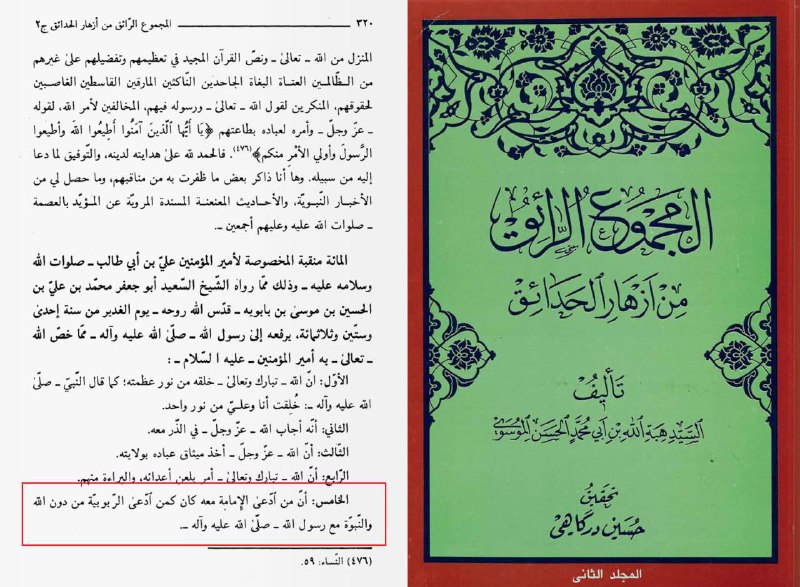 ٣٢٠ المجموع الرّائق من أزهار الحدائق ج٢
المنزل من الله ـ تعالىٰ ـ ونصّ القرآن المجيد في تعظيمهم وتفضيلهم علىٰ غيرهم
من الظّالمـين العتـاة البغاة الجاحدين النّاكثين المارقين القاسطين الغاصبـين
لحقوقهم، المنكرين لقول الله ـ تعالىٰ ـ ورسوله فيهم، المخالفين لأمر الله، لقوله
ـ عزّ وجلّ ـ وأمره لعباده بطاعتهم ﴿يَا أَيُّهَا الَّذينَ آمَنُوا أَطِيعُوا اللهَ وأطيعوا
الرَّسولَ وأولي الأمْرِ منكم﴾(٤٧٦). فالحمد لله علىٰ هدايته لدينه، والتّوفيق لما دعا
إليه من سبيله. وها أنا ذاكر بعض ما ظفرت به من مناقبهم، وما حصل لي من
الأخبـار النّبـويّة، والأحـاديث المعنعنـة المسندة المرويّة عن المـؤيّد بالعصمة
ـ صلوات الله عليه وعليهم أجمعين ـ.
المائة منقبة المخصوصة لأمير المؤمنين عليّ بن أبي طالب ـ صلوات الله
وسلامه عليه ـ وذلك ممّا رواه الشّيخ السّعيد أبو جعفر محمّد بن عليّ بن
الحسين بن موسىٰ بن بابويه ـ قدّس الله روحه ـ يوم الغدير من سنة إحدى
وستّين وثلاثمائة، يرفعه إلىٰ رسول الله ـ صلّى الله عليه وآله ـ ممّا خصّ الله
ـ تعالىٰ ـ به أمير المؤمنين ـ عليه السّلام ـ:
الأوّل: انّ الله ـ تبارك وتعالىٰ ـ خلقه من نور عظمته؛ كما قال النّبيّ ـ صلّى
الله عليه وآله ـ: خُلِقت أنا وعلـيّ من نور واحد.
الثاني: أنّه أجاب الله ـ عزّ وجلّ ـ في الذّر معه.
الثّالث: أنّ الله ـ عزّ وجلّ ـ أخذ ميثاق عباده بولايته.
الرّابع: أنّ الله ـ تبارك وتعالىٰ ـ أمر بلعن أعدائه، والبراءة منهم.
الخامس: أنّ من ٱدّعىٰ الإمامة معه كان كمن ٱدّعىٰ الرّبوبيّة من دون الله
والنّبوّة مع رسول الله ـ صلّى الله عليه وآله ـ.
(٤٧٦) النّساء: ٥٩.
المجموع الرائق
من أزهار الحدائق
تأليف
السيد هبة الله بن أبي محمد الحسن الموسوي
تحقيق
حسين درگاهي
المجلد الثاني